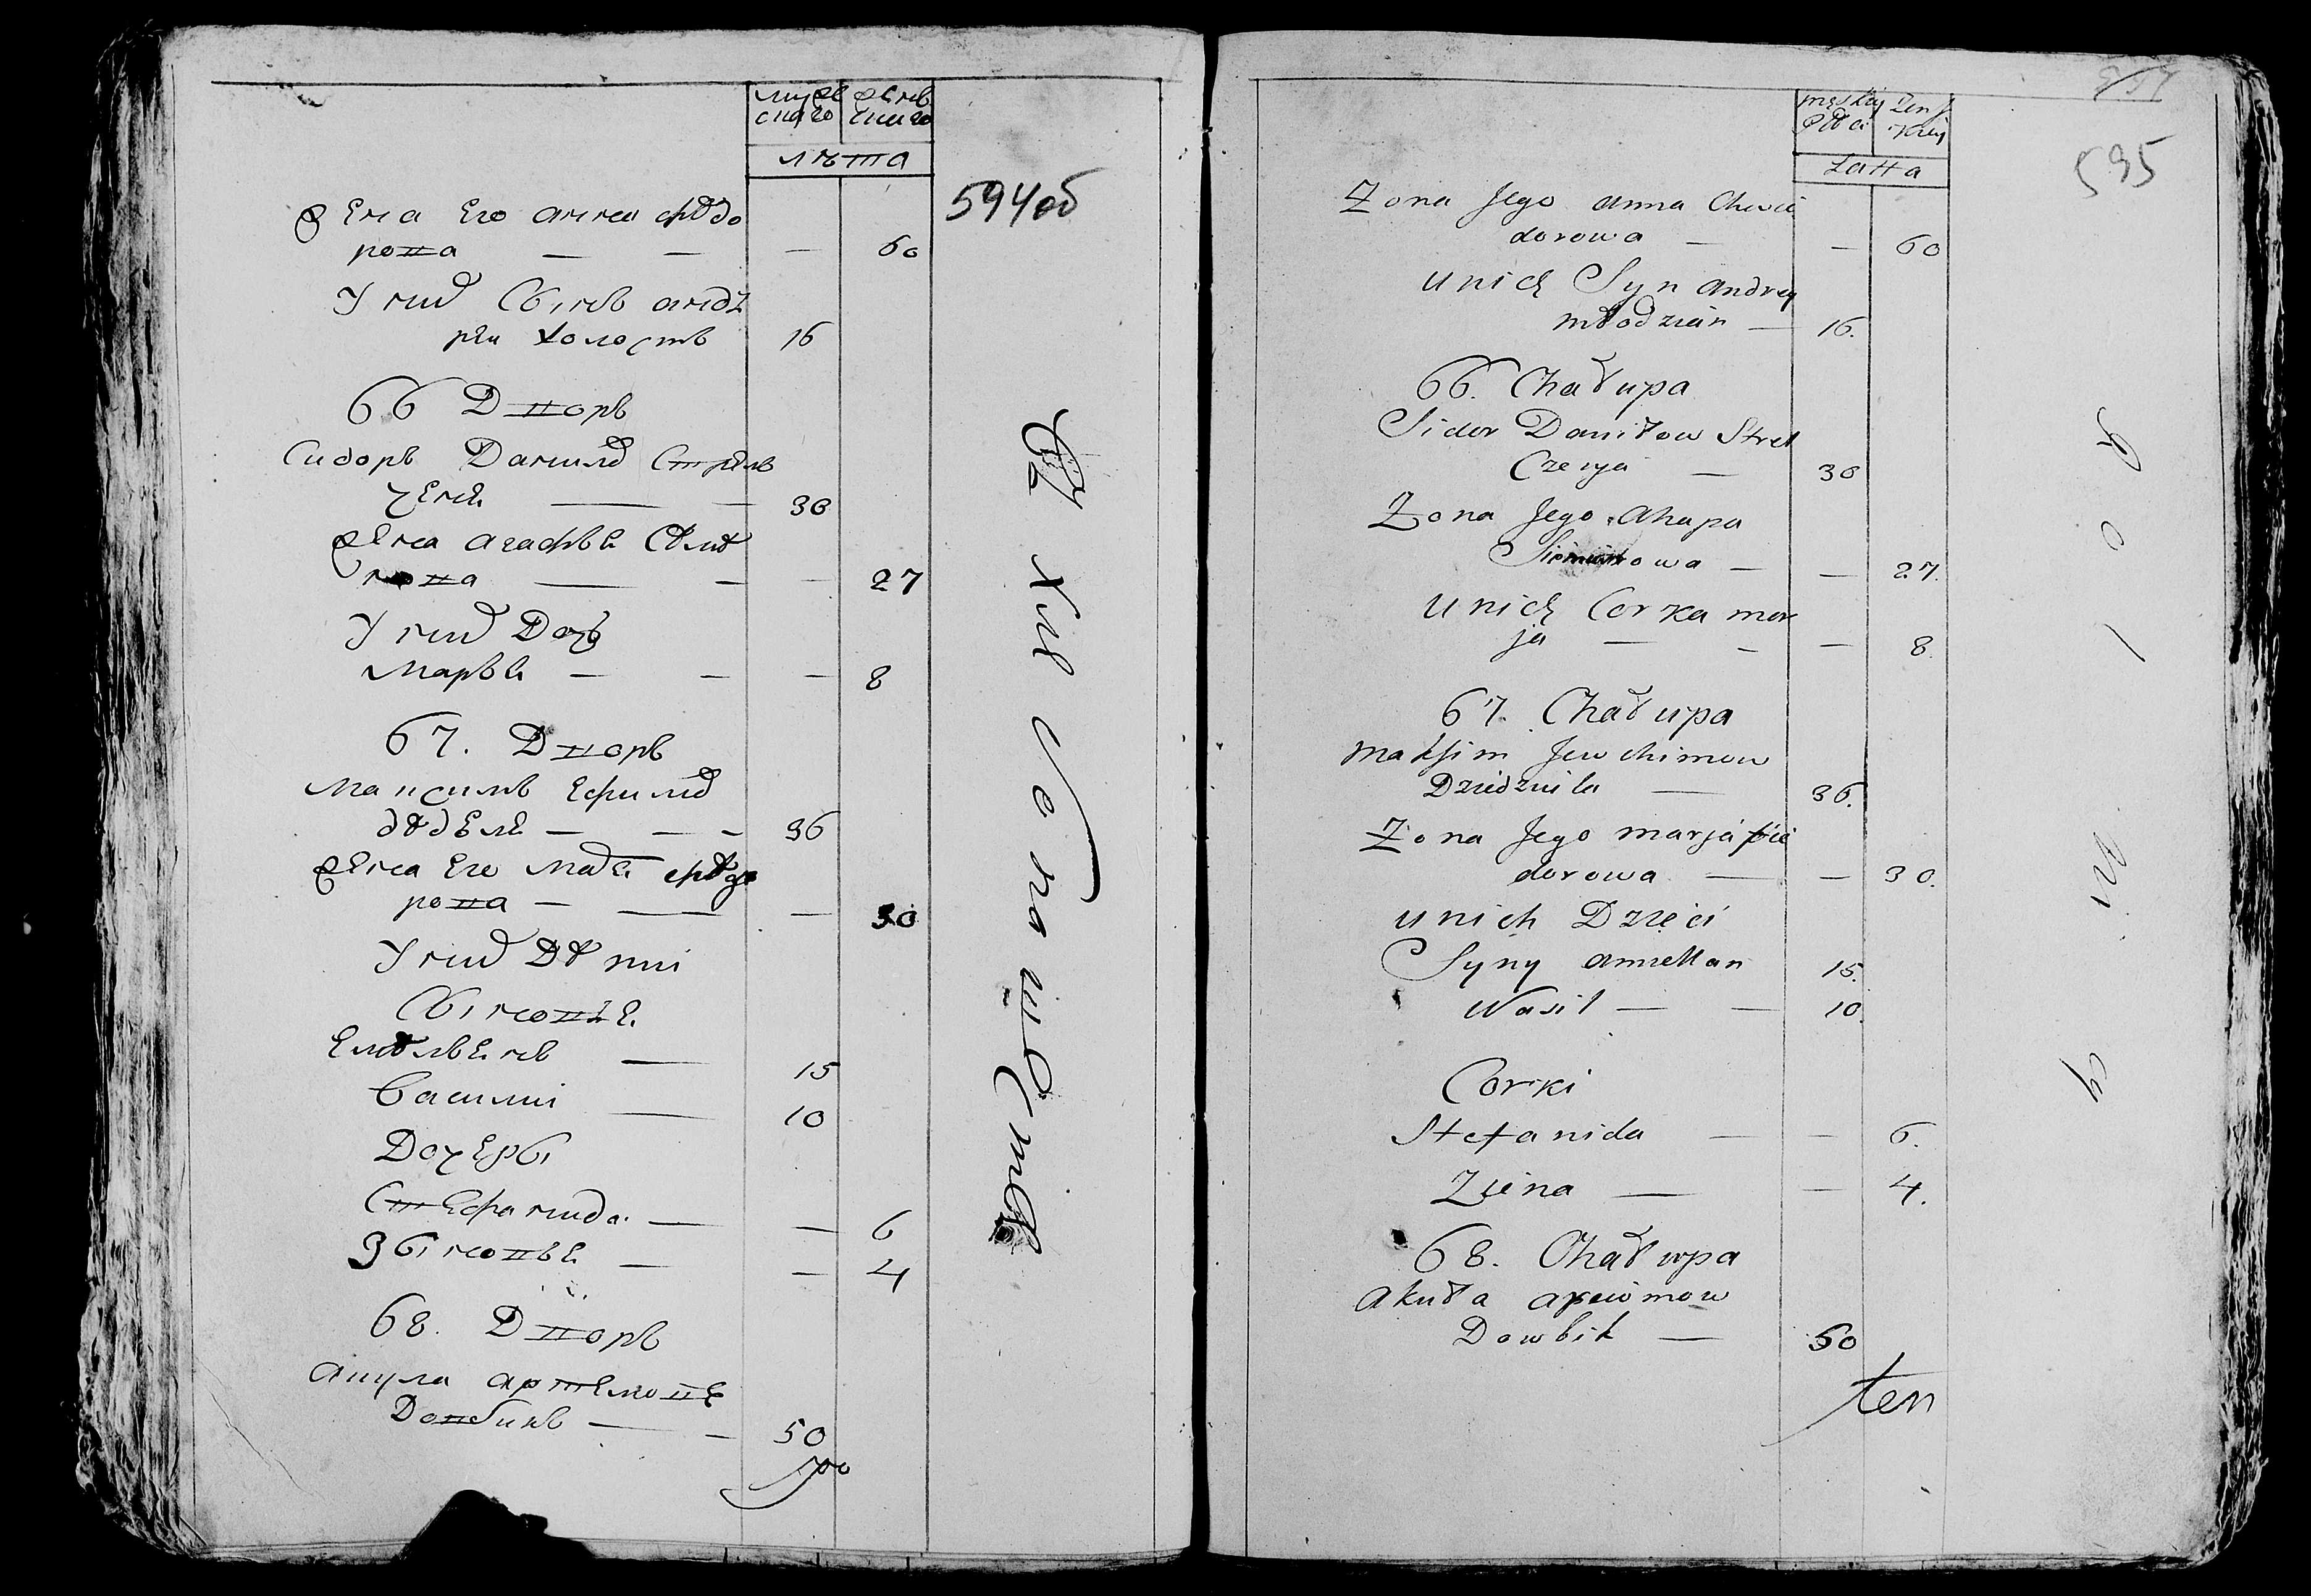 мужескаго женскаго
лѣта
594об
Жена Его Анна Федо
рова — — — 60
У ний Сынъ Анд
рей Холостъ 16
66 Дворъ
Сидоръ Данилов Стрель
ченя — — 36
Жена Агафья Семе
нова — — — 27
У ний Дочь
Марья — — — 8
67. Дворъ
Максимъ Ефимов
деделя — — — 36
Жена Его Мария Федо
рова — — — 30
У ний Дети
Сыновья
Емельянъ — 15
Василий — 10
Дочери
Стефанида — — 6
Зиновья — — 4
68. Дворъ
Акула Артемов
Довбикъ — — 50
męskiey Płci Żeńskiey
Latta
595
Zona Jego Anna Chwie
dorowa — — 60
u nich Syn Andrey
młodzian — 16.
66. Chałupa
Sidor Daniłow Strel
Czenya — 36
Zona Jego Ahapa
Siemionowa — — 27.
u nich Corka mar
ja — — — 8.
67. Chałupa
Maksim Jewchimow
Dziedziula — 36.
Zona Jego marja Fie
dorowa — — 30.
u nich Dzieci
Syny Amiellan 15.
Wasil — — 10.
Corki
Stefanida — — 6.
Ziena — — 4.
68. Chałupa
Akuła Arciomow
Dowbik — 50
ten